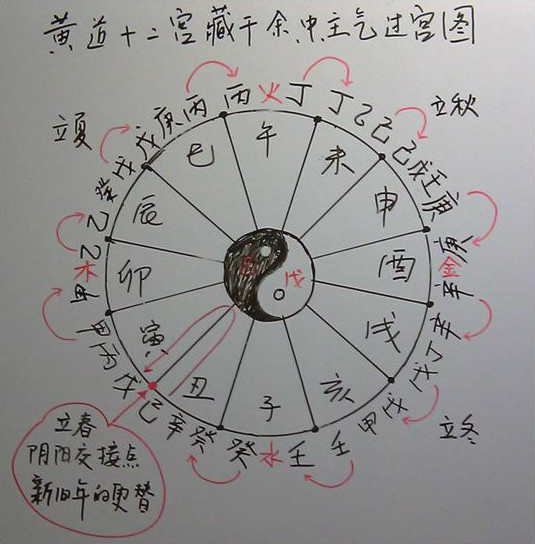 黄道十二宫藏干余中主气过宫图
立夏
立秋
立冬
戊庚丙
丙火丁
丁乙己
己戊壬庚
庚金辛
辛丁戊
戊甲壬
壬水癸
癸辛己
戊丙甲
甲木乙
乙癸戊
巳
午
未
申
酉
戌
亥
子
丑
寅
卯
辰
己
戊
立春
阴阳交接点
新旧年的更替